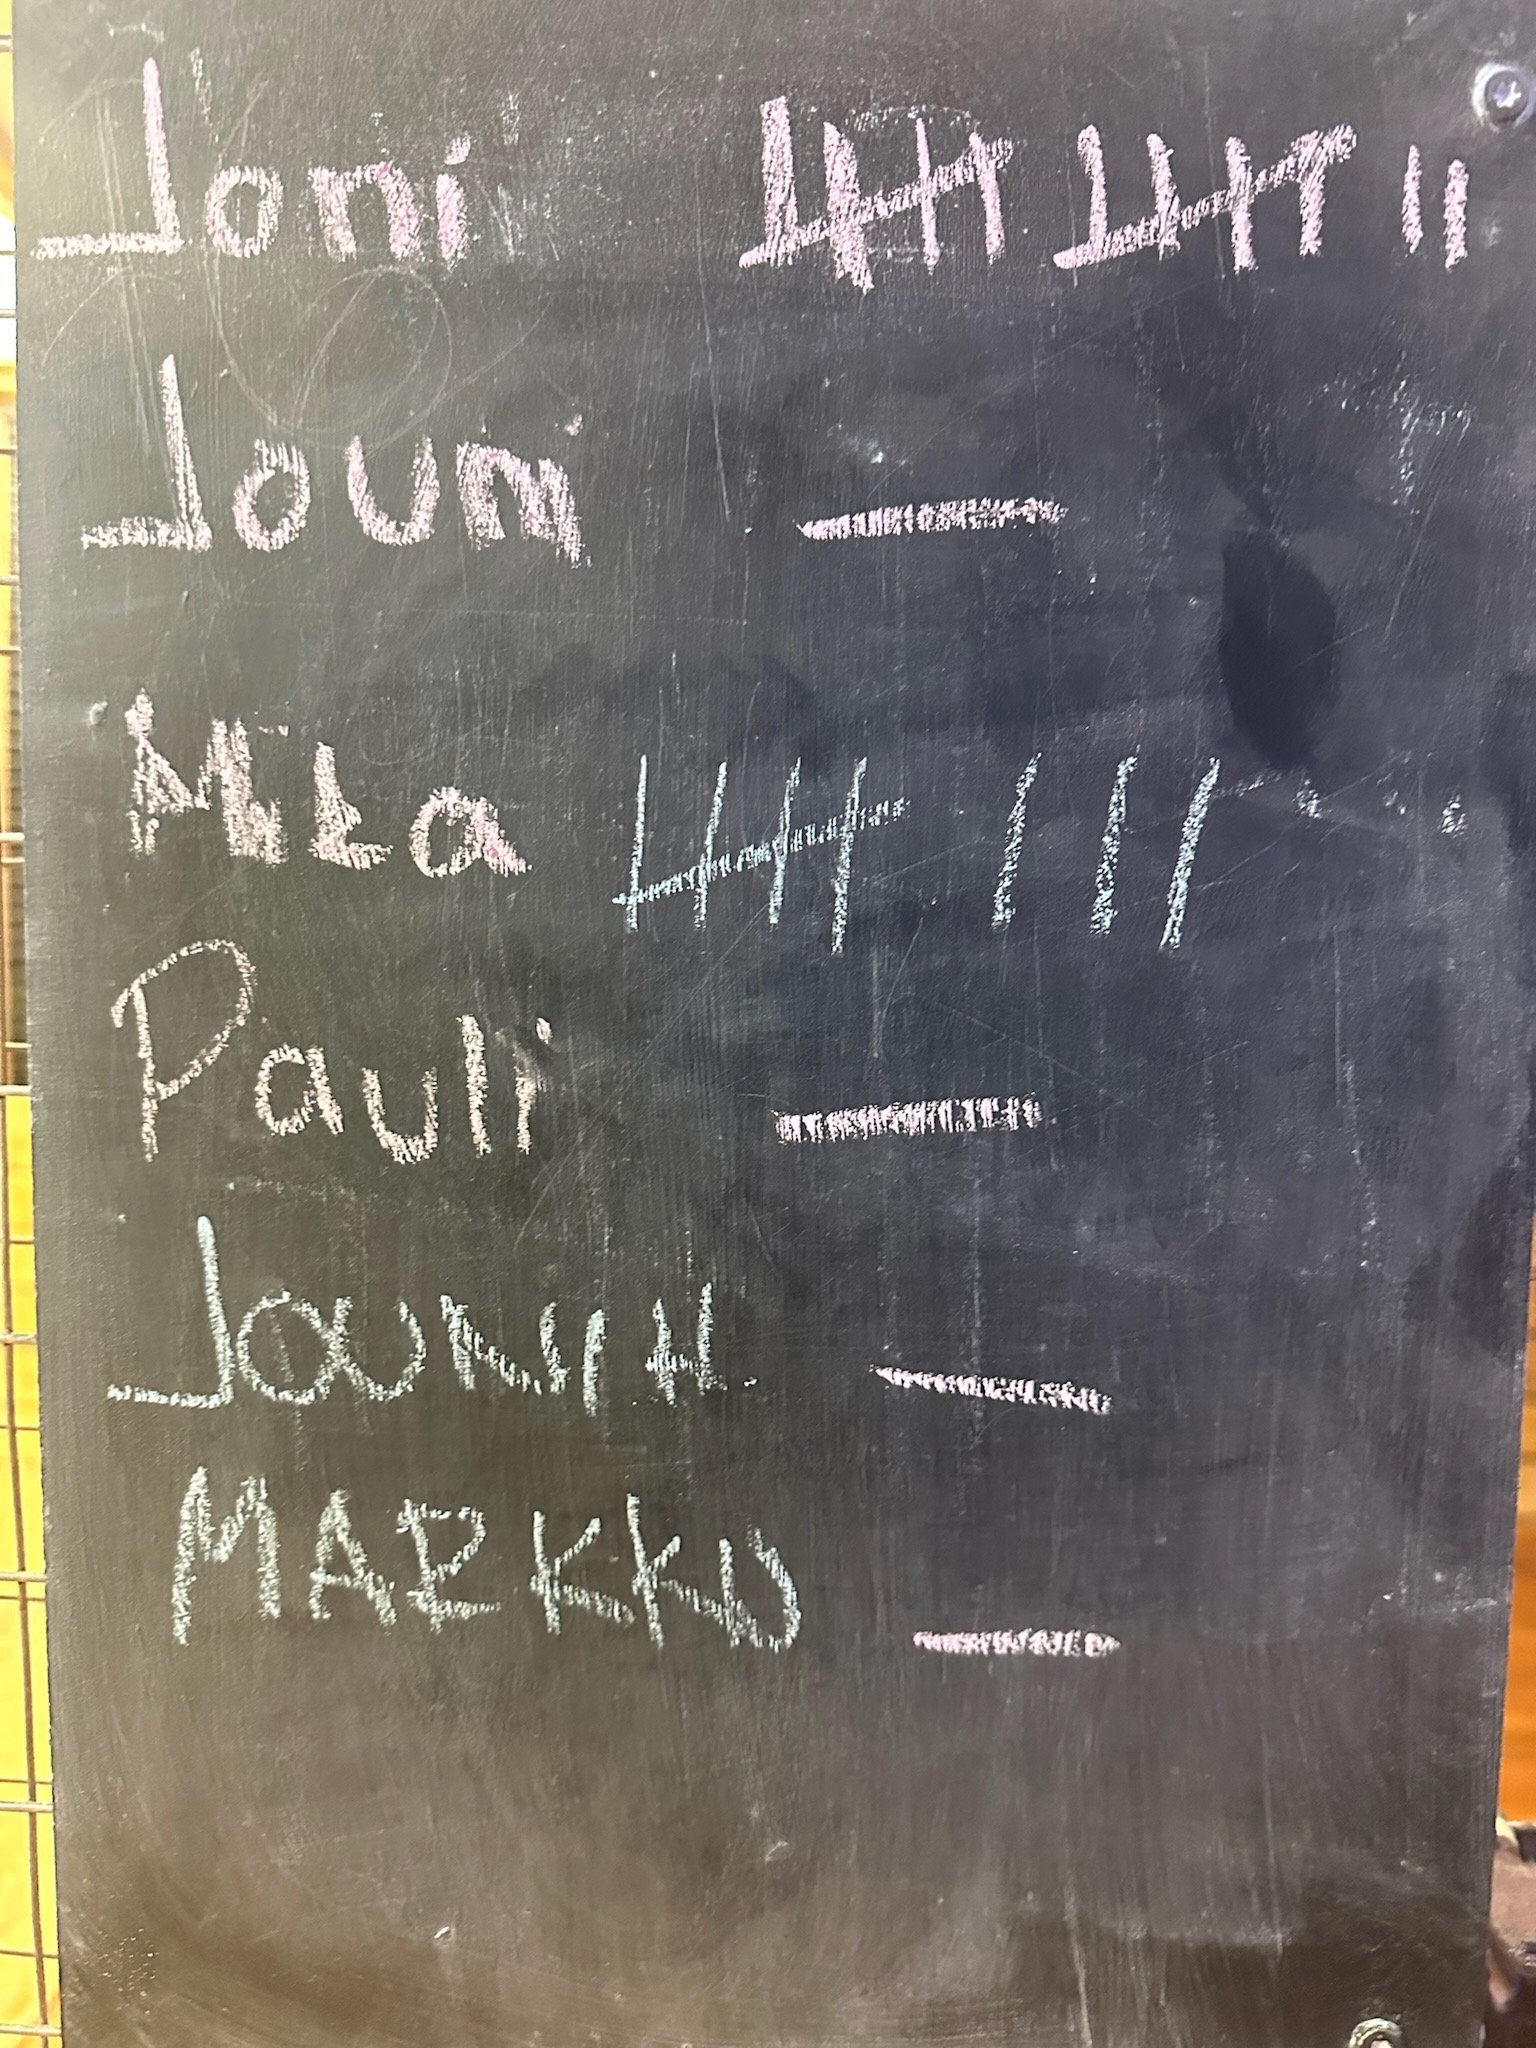 Joni 𝍸 𝍸 ||
Jouni —
Mila 𝍸 |||
Pauli —
JOUNI H. —
MARKKU —